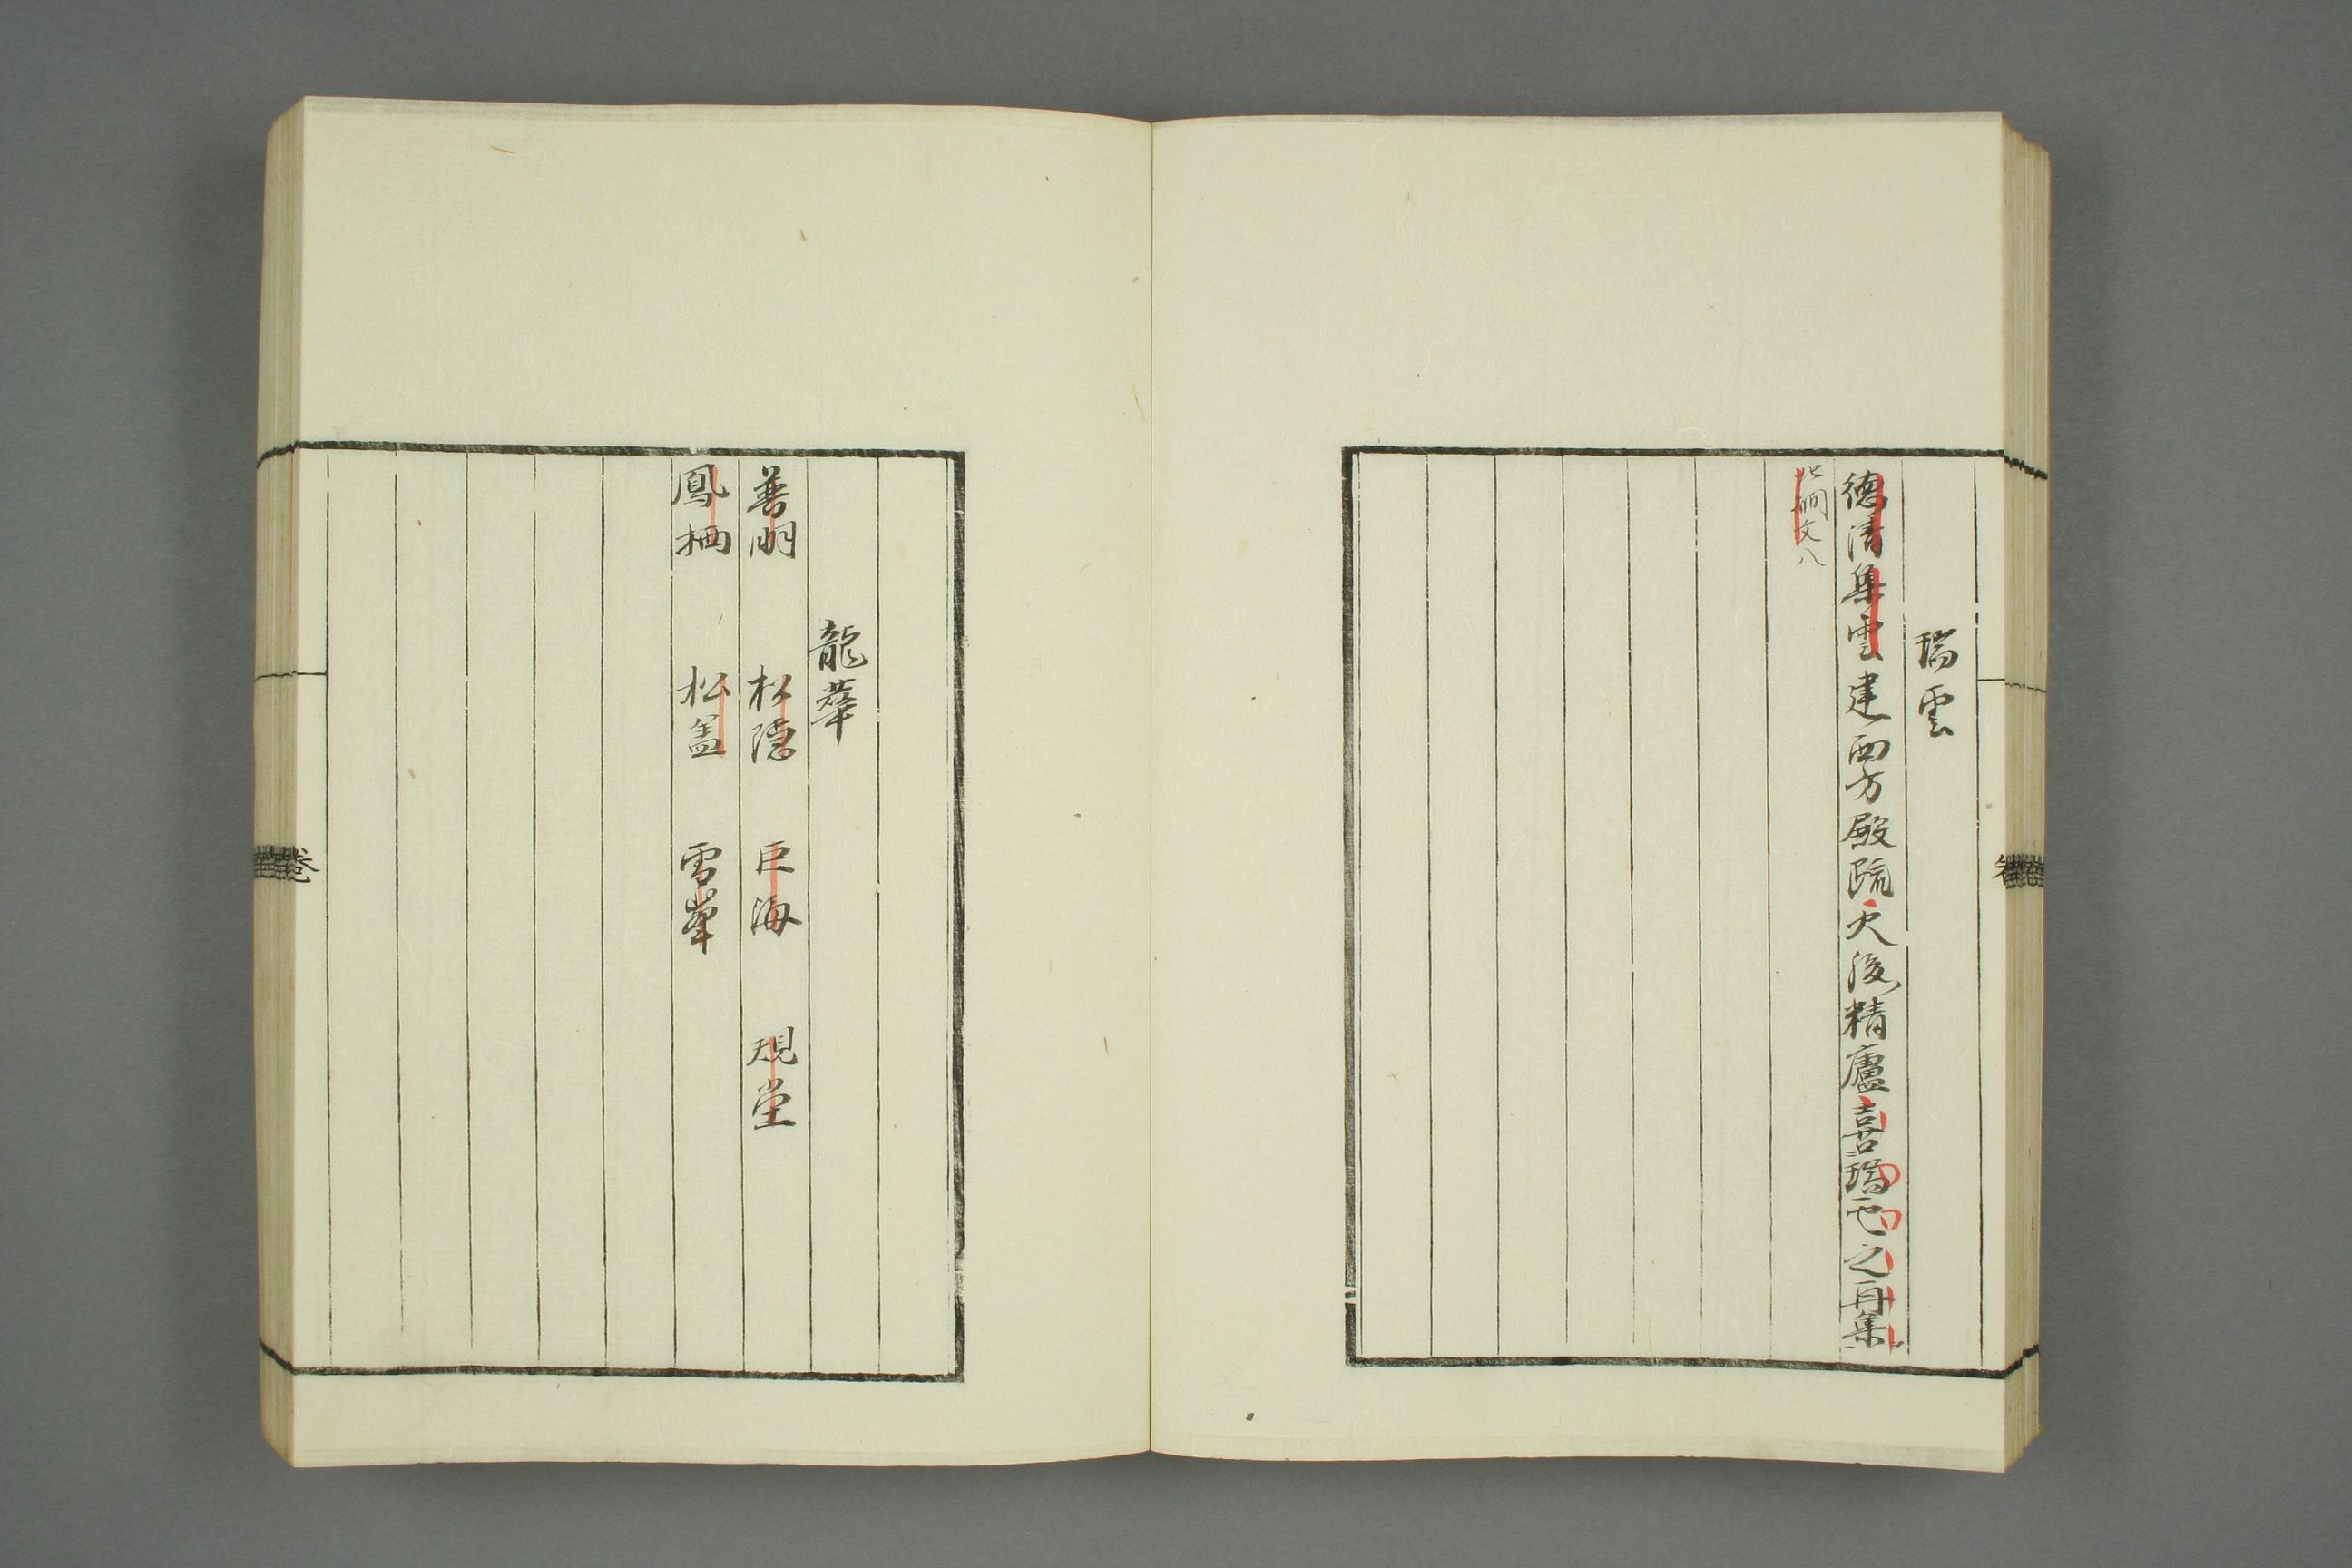 瑞雲
德清集雲建西方殿疏火後精廬喜瑞雲之再集
北磵文八
龍華
善明 松隱 巨海 規堂
鳳栖 松盖 雪峯
卷